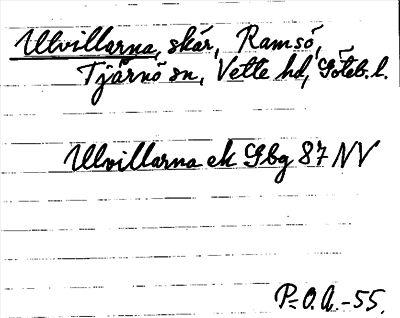 Ulvillarna, skär, Ramsö,
Tjärnö sn, Vette hd, Göteb. l.
Ulvillarna ek Gbg 87 NV
P-O.A.-55.